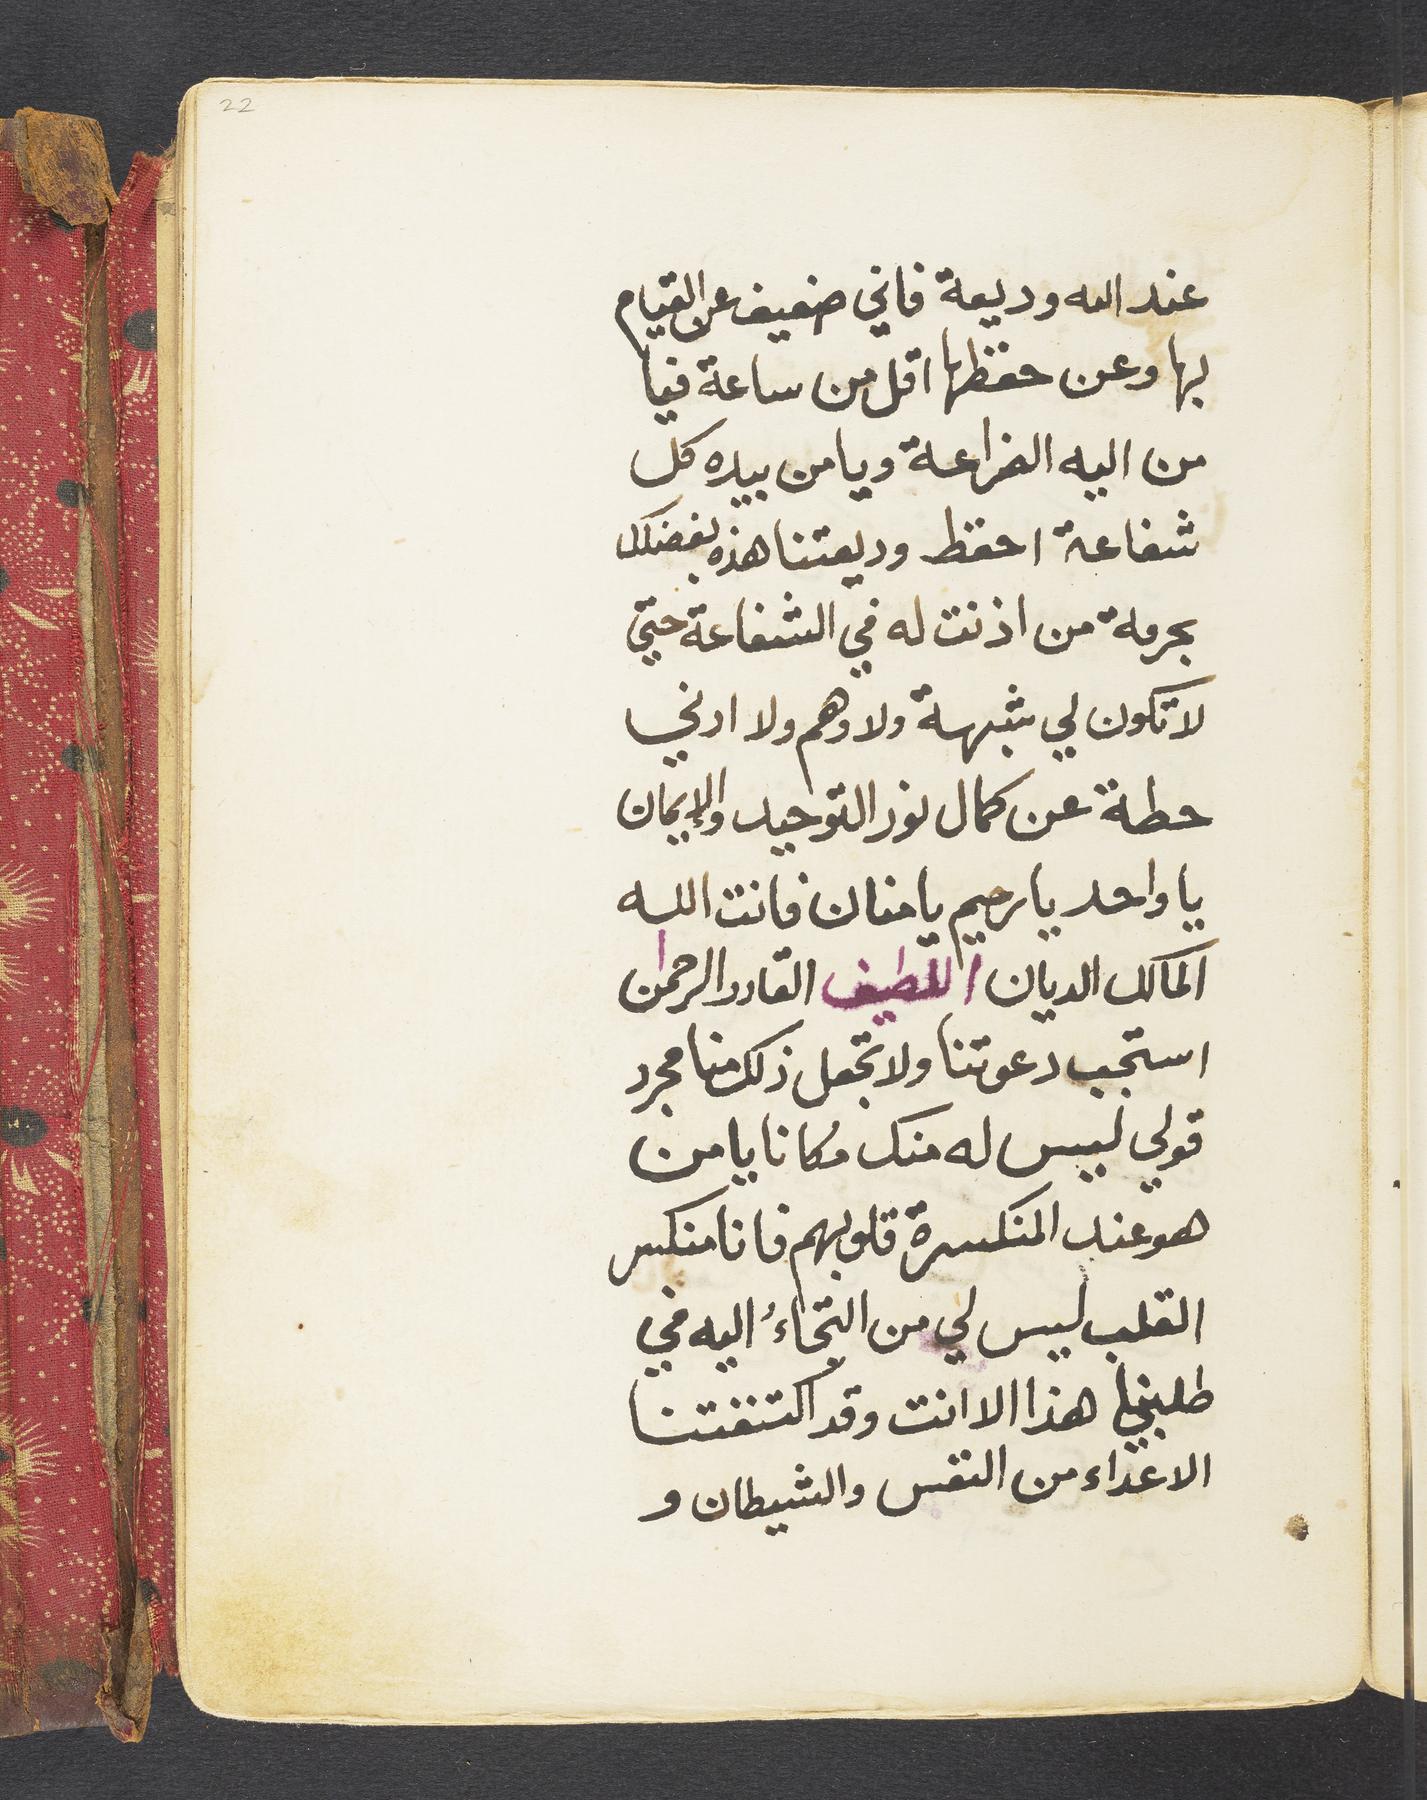 22
عند الله وديعة فاني ضعيف عن القيام
بها وعن حفظها اقل من ساعة فيا
من اليه الضراعة ويا من بيده كل
شفاعة احفظ وديعتنا هذه بفضلك
بحرمة من اذنت له في الشفاعة حتي
لا تكون لي شبهة ولا وهم ولا ادني
حطة عن كمال نور التوحيد والإيمان
يا واحد يا رحيم يا منان فانت الله
المالك الديان اللطيف القادر الرحمن
استجب دعوتنا ولا تجعل ذلك منا مجرد
قولي ليس له منك مكانا يا من
هو عند المنكسرة قلوبهم فانا منكسر
القلب ليس لي من التجاءُ اليه في
هذا الا انت وقد اكتنفتنا
الاعداء من النفس والشيطان و